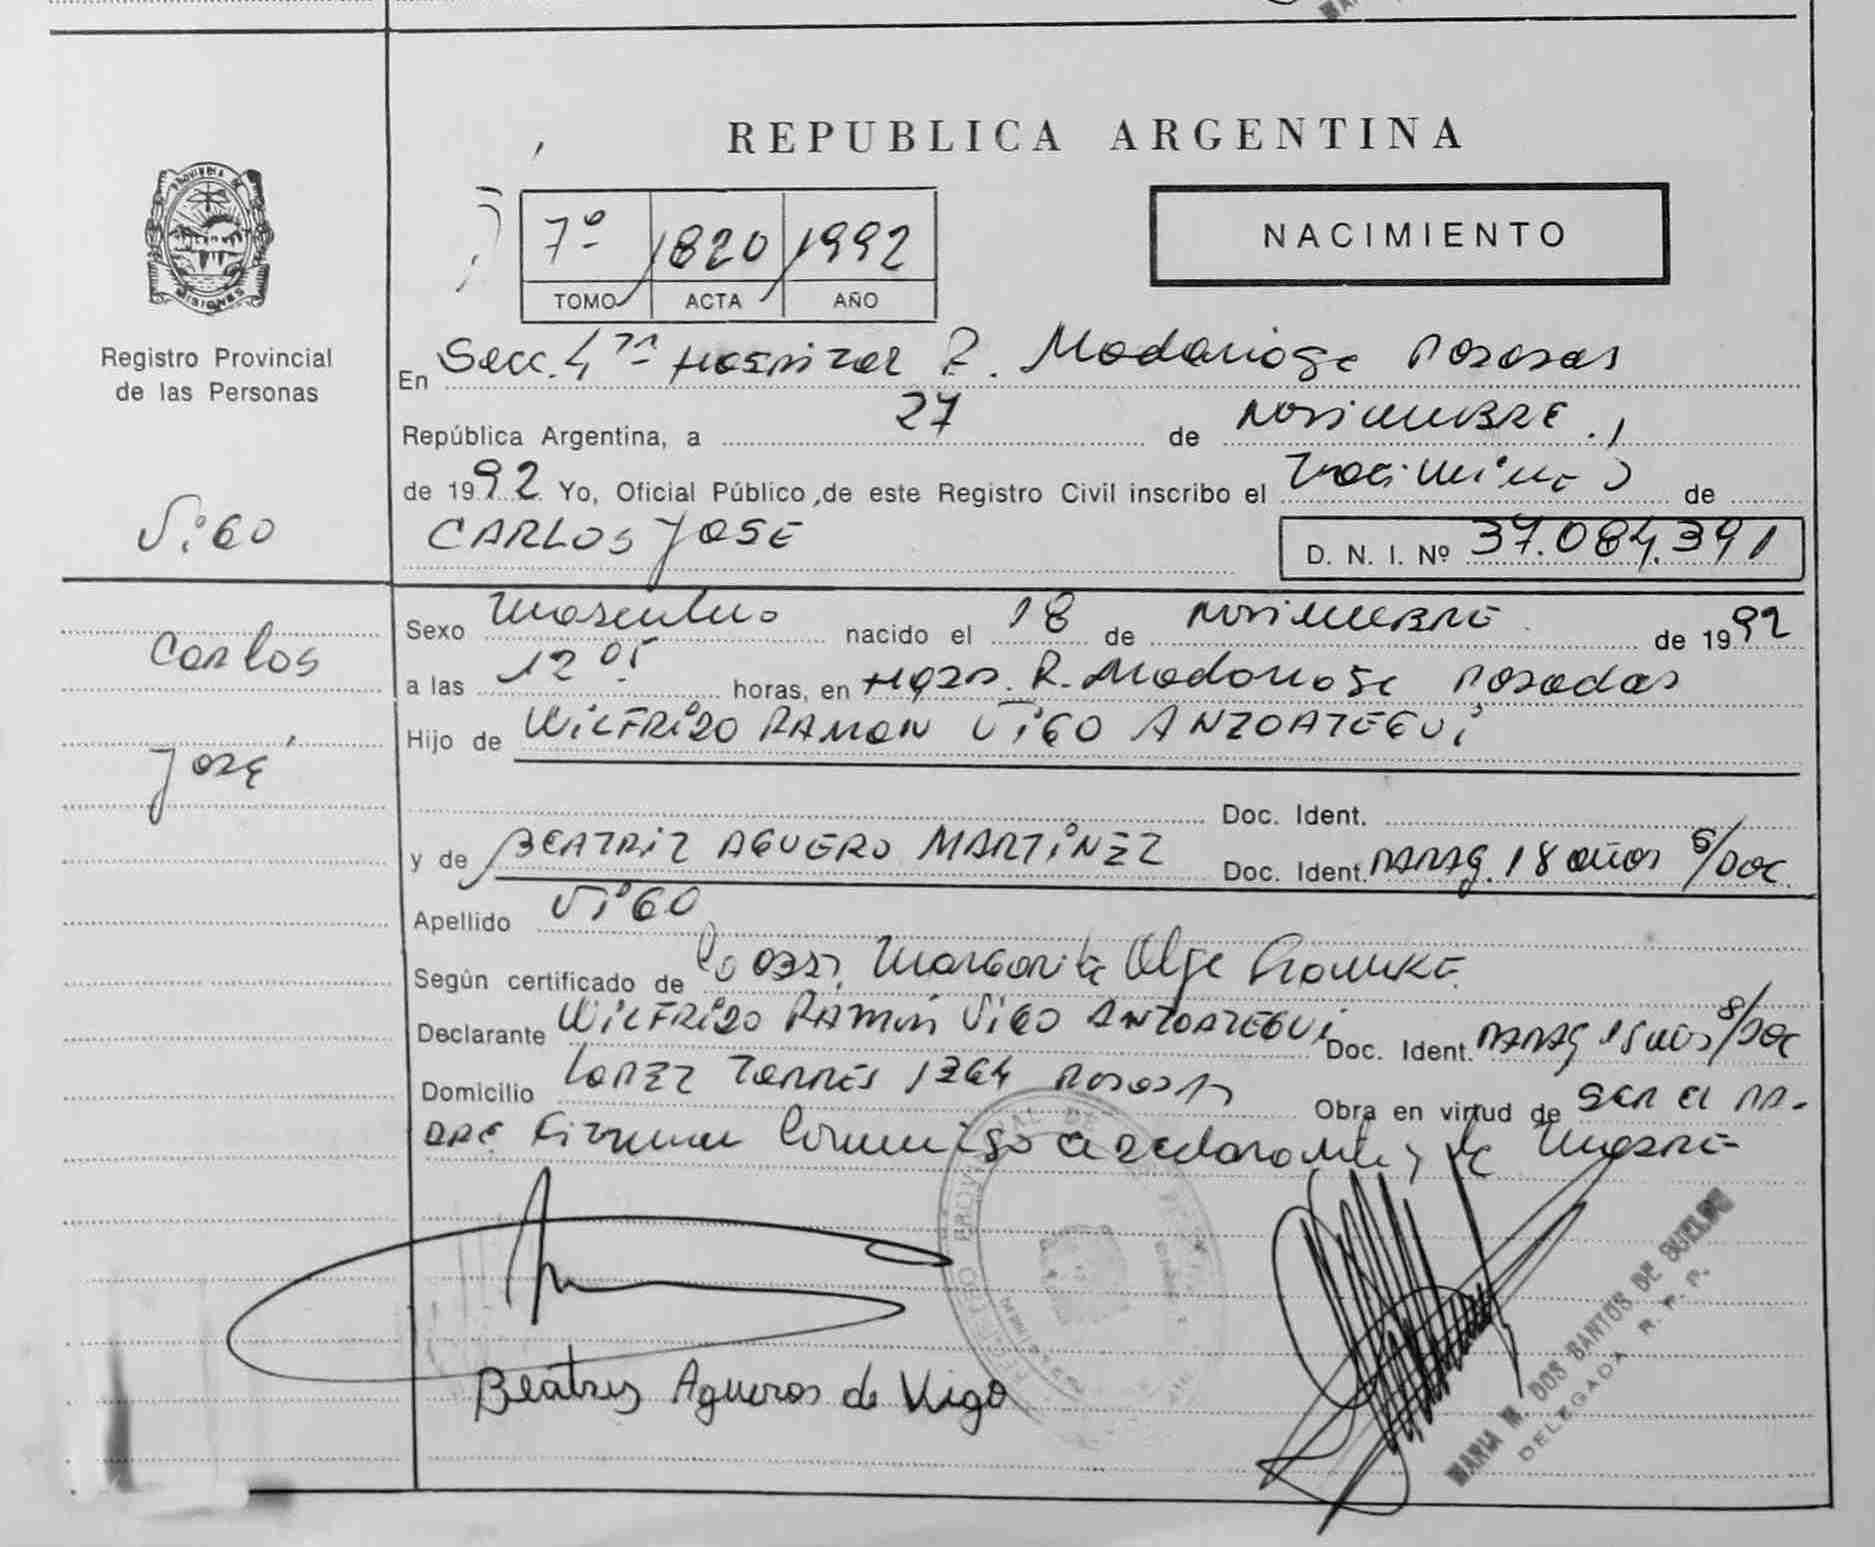 REPUBLICA ARGENTINA
PROVINCIA DE
MISIONES
Registro Provincial
de las Personas
7º 1820 1992
TOMO ACTA AÑO
NACIMIENTO
En Secc. 4 Hospital R. Madariaga Posadas
República Argentina, a 27 de NOVIEMBRE
de 1992 Yo, Oficial Público, de este Registro Civil inscribo el Nacimiento de
CARLOS JOSE
D. N. I. Nº 37.084.391
ViGO
Carlos
José
Sexo Masculino nacido el 18 de NOVIEMBRE de 1992
a las 12 05 horas, en Hosp. R. Madariaga Posadas
Hijo de WILFRIDO RAMON ViGO ANZOATEGUi
Doc. Ident.
y de BEATRIZ AGUERO MARTÍNEZ Doc. Ident. PARAG. 18 años S/DOC
Apellido ViGO
Según certificado de Margarita Olga
Declarante WILFRIDO RAMÓN ViGO ANZOATEGUi Doc. Ident. PARAG S/DOC
Domicilio LOPEZ TORRES 1264 Posadas Obra en virtud de SER El PA-
DRE Firman Conmigo el declarante y la MADRE
Beatriz Agueros de Vigo
MARIA M. DOS SANTOS DE SUELDO
DELEGADA R. P. P.